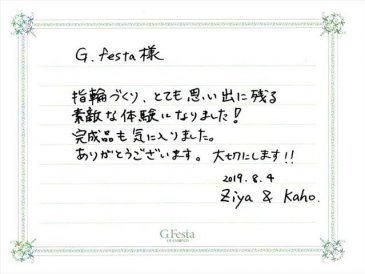 G.festa様
指輪づくり、とても思い出に残る
素敵な体験になりました!
完成品も気に入りました。
ありがとうございます。大切にします!!
2019.8.4
Ziya & Kaho.
G.Festa
DIAMOND